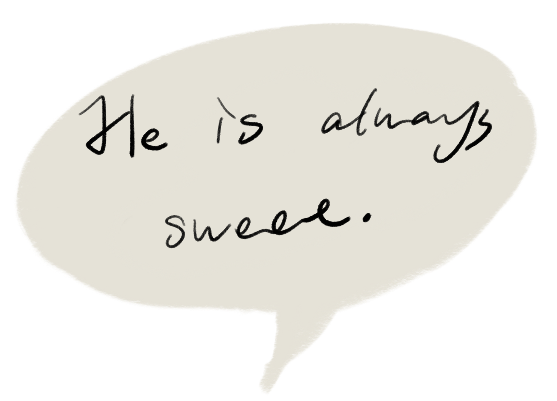 He is always
sweee.